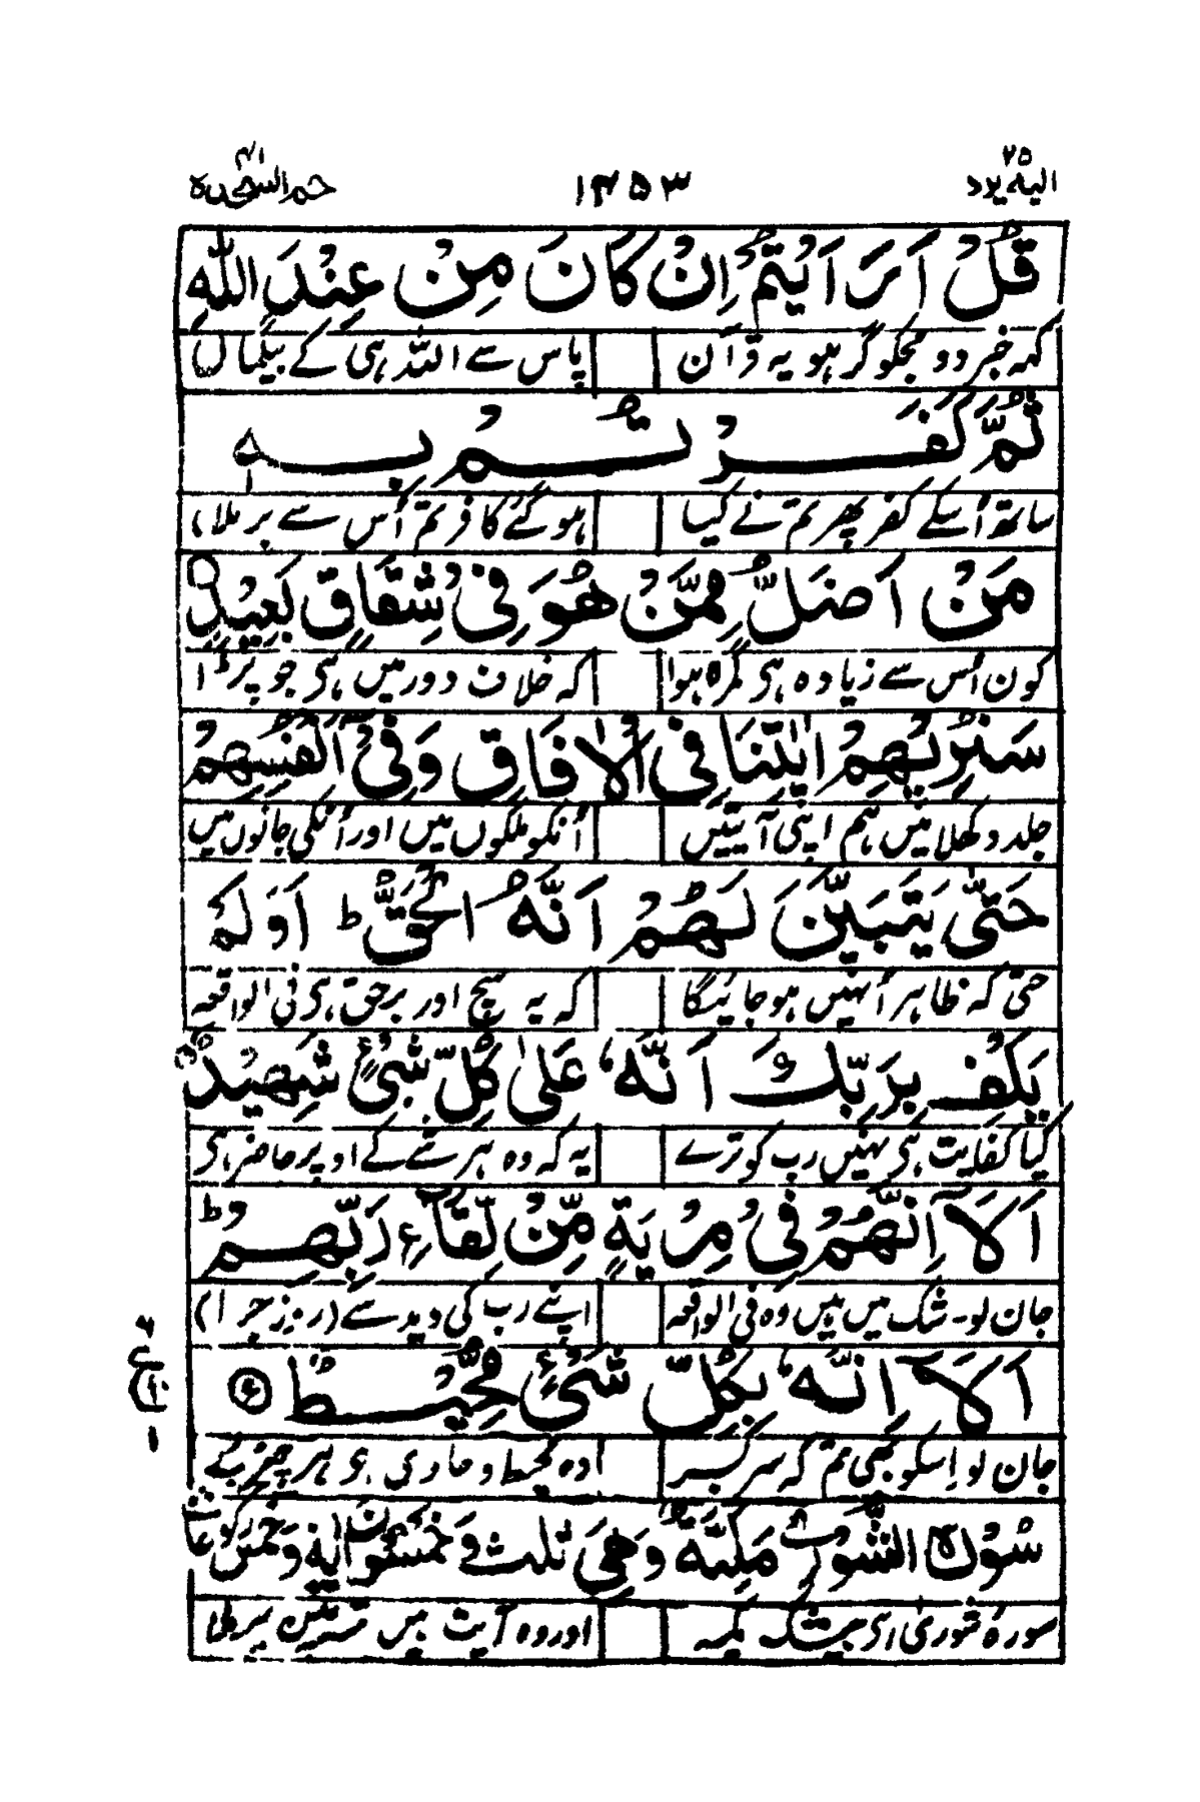 الیہ یرد ۲۵ ۱۴۵۳ حم السجدہ ۴۱
قُلْ اَرَءَیْتُمْ اِنْ كَانَ مِنْ عِنْدِ اللّٰهِ
کہہ خبر دو مجکو گر ہو یہ قرآن پاس سے اللہ ہی کے بیگماں
ثُمَّ كَفَرْتُمْ بِهٖ
ساتھ اُسکے کفر پھر تم نے کیا ہو گئے کافر تم اُس سے بر ملا
مَنْ اَضَلُّ مِمَّنْ هُوَ فِیْ شِقَاقٍۭ بَعِیْدٍ
کون اُس سے زیادہ ہی گمرہ ہوا کہ خلاف دور میں ہی جو پڑا
سَنُرِیْهِمْ اٰیٰتِنَا فِی الْاٰفَاقِ وَفِیْۤ اَنْفُسِهِمْ
جلد دکھلائیں ہم اپنی آیتیں اُنکو ملکوں میں اور اُنکی جانوں میں
حَتّٰی یَتَبَیَّنَ لَهُمْ اَنَّهُ الْحَقُّ ؕ اَوَلَمْ
حتیٰ کہ ظاہر اُنہیں ہو جائیگا کہ یہ سچ اور برحق ہی فی الواقعہ
یَكْفِ بِرَبِّكَ اَنَّهٗ عَلٰی كُلِّ شَیْءٍ شَهِیْدٌ
کیا کفایت ہی نہیں رب کو ترے یہ کہ وہ ہر شے کے اوپر حاضر ہی
اَلَاۤ اِنَّهُمْ فِیْ مِرْیَةٍ مِّنْ لِّقَآءِ رَبِّهِمْ ؕ
جان لو۔ شک میں ہیں وہ فی الواقعہ اپنے رب کی دید سے (روز جزا)
اَلَاۤ اِنَّهٗ بِكُلِّ شَیْءٍ مُّحِیْطٌ
جان لو اِسکو بھی تم کہ سر بسر وہ محیط و حاوی ہی ہر چیز پے
سُوْرَةُ الشُّوْرٰی مَكِّیَّةٌ وَّهِیَ ثَلٰثٌ وَّخَمْسُوْنَ اٰیَةً وَّخَمْسُ
سورہ شوریٰ ہی بیشک مکیہ اور وہ آیت ہیں